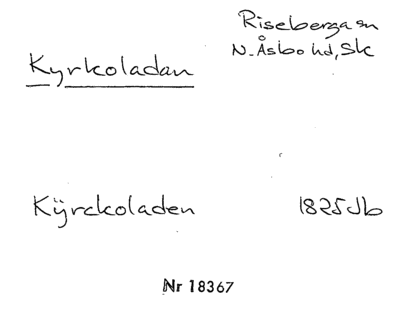 Riseberga sn
N. Åsbo hd, Sk
Kyrkoladan
Kÿrckoladen 1825 Jb
Nr 18367